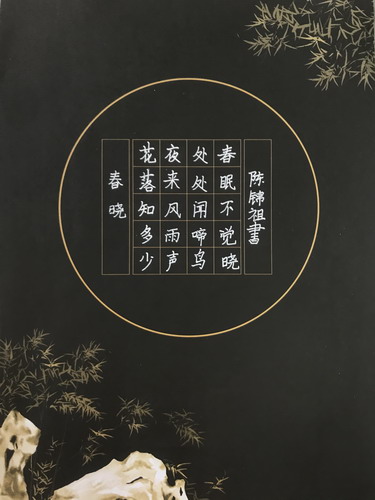 陈锦祖書
春眠不觉晓
处处闻啼鸟
夜来风雨声
花落知多少
春晓